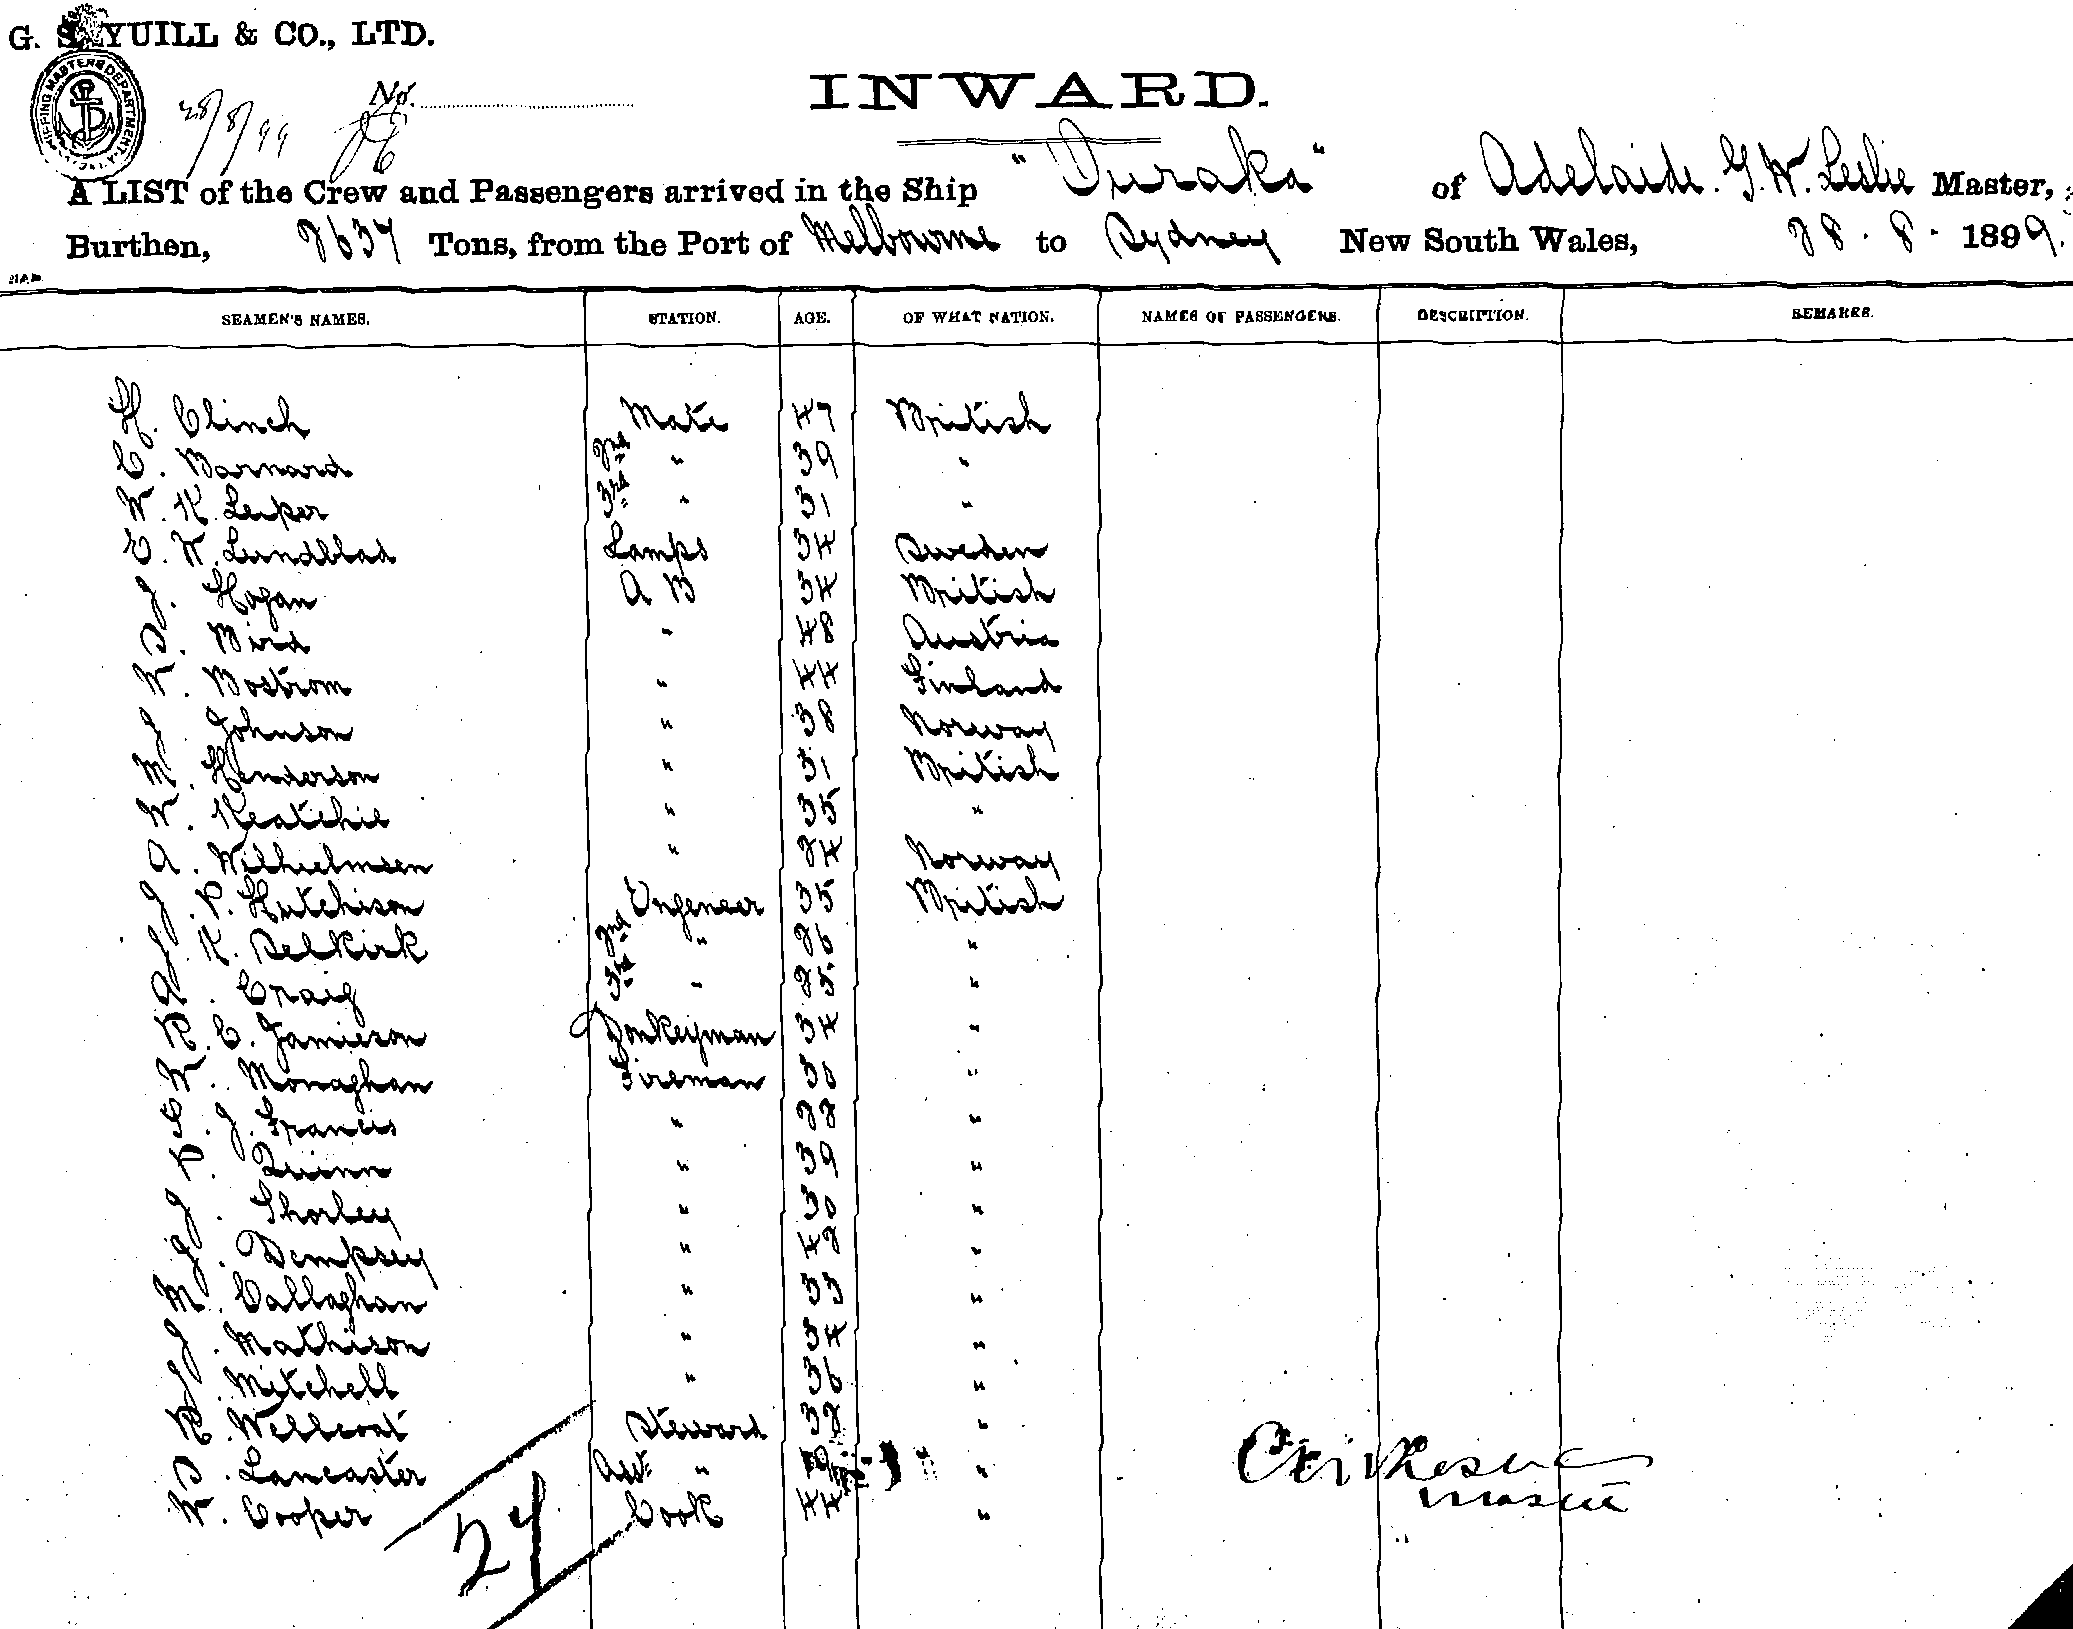 G. S. YUILL & CO., LTD.
SHIPPING MASTERS DEPARTMENT
28/8/99 No.
INWARD.
A LIST of the Crew and Passengers arrived in the Ship "Ouraka" of Adelaide. G. W. Leslie Master,
Burthen, 2637 Tons, from the Port of Melbourne to Sydney New South Wales, 28 . 8 . 1899.
SEAMEN'S NAMES. STATION. AGE. OF WHAT NATION. NAMES OF PASSENGERS. DESCRIPTION. REMARKS.
H. Clinch Mate 47 British
C. Barnard 2nd " 39 "
W. K. Leiper 3rd " 31 "
E. W. Lundblad Lamps 34 Sweden
J. Hogan A B 34 British
S. Bird " 48 Austria
W. Bostrom " 44 Finland
J. Johnson " 38 Norway
M. Henderson " 31 British
W. Keatchie " 35 "
A. Wilhelmsen " 24 Norway
J. P. Hutchison Engeneer 35 British
J. K. Selkirk 2nd " 26 "
A. Craig 3rd " 25 "
R. C. Jamieson Donkeyman 34 "
W. Monaghan Fireman 30 "
C. J. Francis " 22 "
P. Quinn " 39 "
J. Shorley " 30 "
J. Dempsey " 42 "
M. Callaghan " 33 "
J. Mathison " 34 "
J. Mitchell " 36 "
R. Wellcoat Steward 32 "
S. Lancaster Asst "  "
W. Cooper Cook 44 "
27
Master